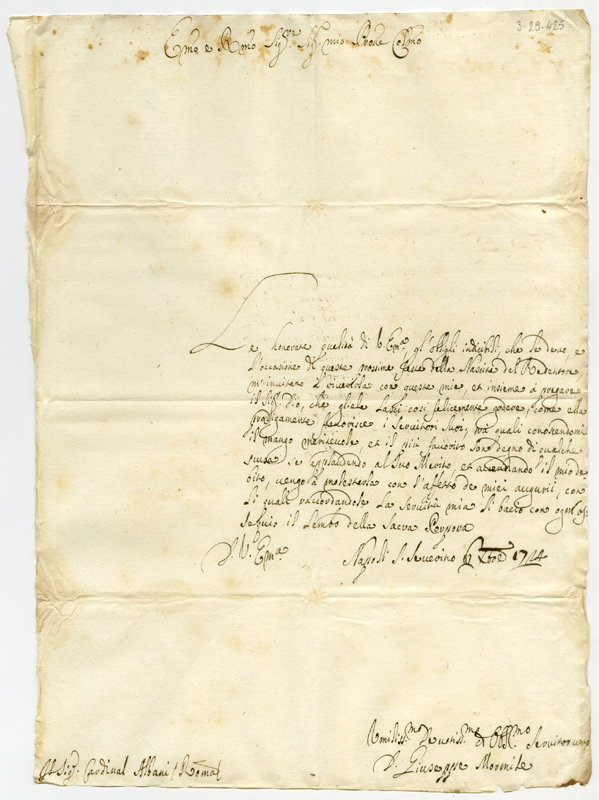 3-29-425
Em̃o e Rm̃o Sig.re Sig.r mio Prõne Col̃mo
Le honorate qualità di V. Em.a gl'oblighi indicibili, che le devo, e
l'occasione di queste prossime feste della Nascita del Redentore
m'invitano à riverirla con questa mia, et insieme à pregare
il Sig.r Dio, che gliele lasci così felicemente godere, come ella
prodigamente favorisce i servitori suoi, trà quali conoscendomi
il manco meritevole, et il più favorito son degno di qualche
scusa se applaudendo al suo Merito, et accennando il mio de
bito, vengo à molestarla con l'affetto de miei augurii, con
li quali raccordandole la servitù mia li bacio con ogni os
sequio il lembo della sacra Porpora
D. V. Em.a Napoli S. Severino Xbre 1714
Umiliss.mo Devotiss.mo et Obl.mo Servitor vero
D. Giuseppe Mormile
Al Sig.r Cardinal Albani / Roma /